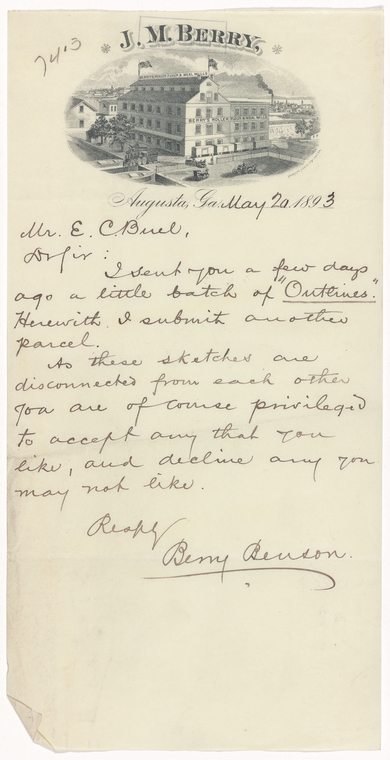 J. M. BERRY,
BERRY'S ROLLER FLOUR & MEAL MILLS
Augusta, Ga. May 20 1893
Mr. E. C. Buel,
Dr Sir :
I sent you a few days
ago a little batch of "Outlines".
Herewith I submit another
parcel.
As these sketches are
disconnected from each other
you are of course privileged
to accept any that you
like, and decline any you
may not like.
Respy
Berry Benson.